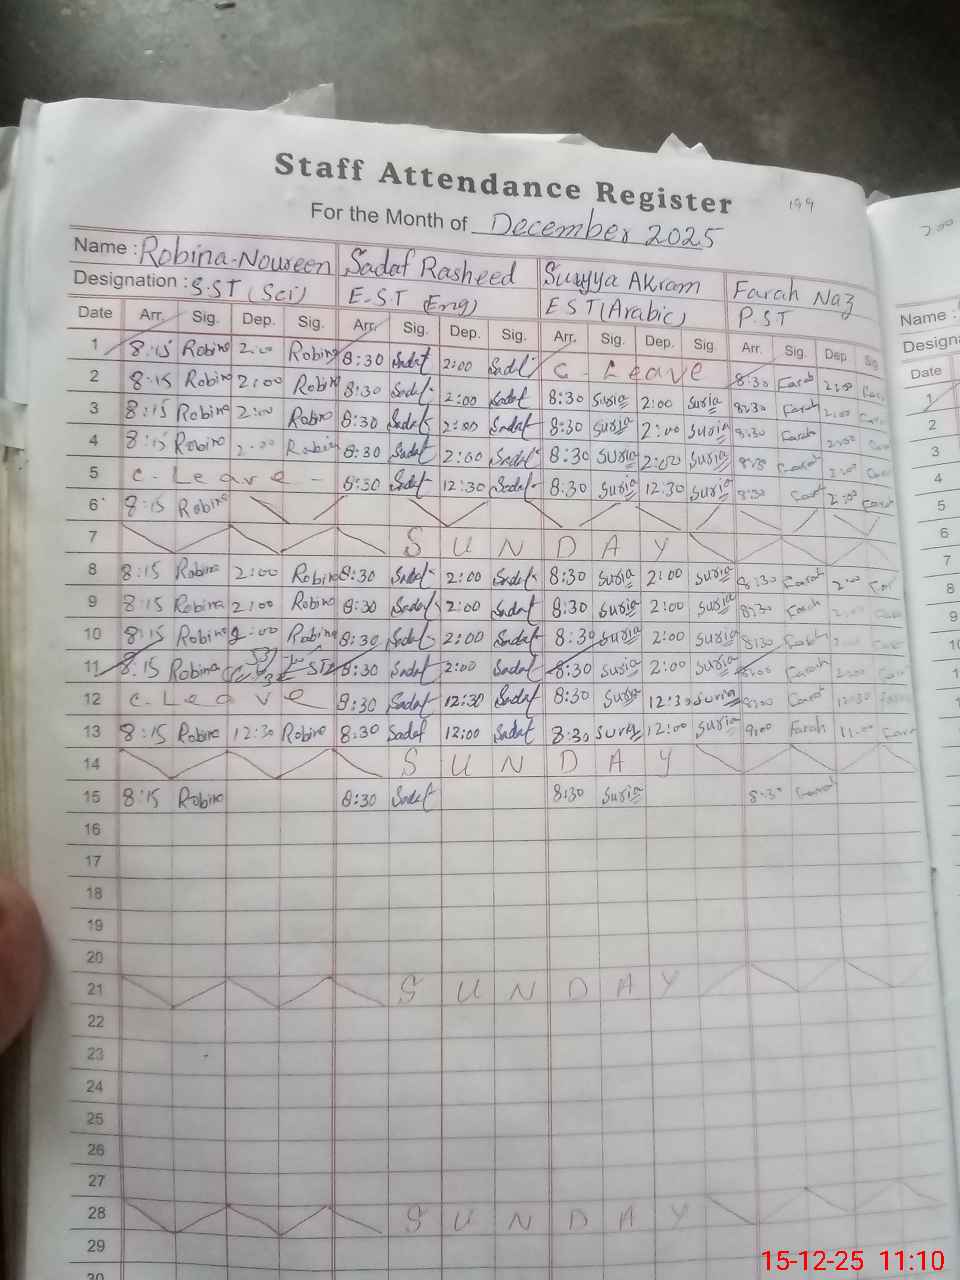 Staff Attendance Register
199
For the Month of December 2025
Name : Robina Noureen Sadaf Rasheed Surryya Akram Farah Naz
Designation : S.ST (Sci) E-ST (Eng) EST (Arabic) P.ST
Date Arr. Sig. Dep. Sig. Arr. Sig. Dep. Sig. Arr. Sig. Dep. Sig. Arr. Sig. Dep Sig
1 8:15 Robina 2:00 Robina 8:30 Sadaf 2:00 Sadaf C. Leave 8:30 Farah 2:00
2 8:15 Robina 2:00 Robina 8:30 Sadaf 2:00 Sadaf 8:30 Suria 2:00 Suria 8:30 Farah 2:00
3 8:15 Robina 2:00 Robina 8:30 Sadaf 2:00 Sadaf 8:30 Suria 2:00 Suria 8:30 Farah 2:00
4 8:15 Robina 2:00 Robina 8:30 Sadaf 2:00 Sadaf 8:30 Suria 2:00 Suria 8:30 Farah 2:00
5 C. Leave 8:30 Sadaf 12:30 Sadaf 8:30 Suria 12:30 Suria 8:30 Farah 2:00 Farah
6 8:15 Robina
7 SUNDAY
8 8:15 Robina 2:00 Robina 8:30 Sadaf 2:00 Sadaf 8:30 Suria 2:00 Suria 8:30 Farah 2:00
9 8:15 Robina 2:00 Robina 8:30 Sadaf 2:00 Sadaf 8:30 Suria 2:00 Suria 8:30 Farah
10 8:15 Robina 2:00 Robina 8:30 Sadaf 2:00 Sadaf 8:30 Suria 2:00 Suria 8:30 Farah
11 8:15 Robina 8:30 Sadaf 2:00 Sadaf 8:30 Suria 2:00 Suria Farah 2:00
12 C. Leave 8:30 Sadaf 12:30 Sadaf 8:30 Suria 12:30 Suria Farah 12:30
13 8:15 Robina 12:30 Robina 8:30 Sadaf 12:00 Sadaf 8:30 Suria 12:00 Suria 9:00 Farah 11:00 Farah
14 SUNDAY
15 8:15 Robina 8:30 Sadaf 8:30 Suria 8:30 Farah
16
17
18
19
20
21 SUNDAY
22
23
24
25
26
27
28 SUNDAY
29
30
2:00
Name :
Date
1
2
3
4
5
6
7
8
9
15-12-25 11:10